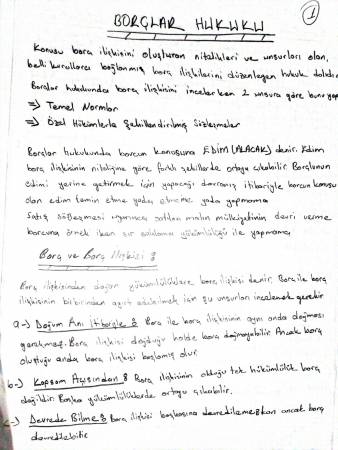 1
BORÇLAR HUKUKU
Konusu borç ilişkisini oluşturan nitelikleri ve unsurları olan,
belli kurallara bağlanmış borç ilişkilerini düzenleyen hukuk dalıdır.
Borçlar hukukunda borç ilişkisini incelerken 2 unsura göre bunu yapa
=> Temel Normlar
=> Özel Hükümlerle Şekillendirilmiş Sözleşmeler
Borçlar hukukunda borcun konusuna EDİM (ALACAK) denir. Edim
borç ilişkisinin niteliğine göre farklı şekillerde ortaya çıkabilir. Borçlunun
edimi yerine getirmek için yapacağı davranış itibariyle borcun konusu
olan edim temin etme yada etmeme yada yapmama
Satış sözleşmesi uyarınca satılan malın mülkiyetinin devri verme
borcuna örnek iken sır saklama yükümlülüğü ile yapmama
Borç ve Borç İlişkisi :
Borç ilişkisinden doğan yükümlülüklere borç ilişkisi denir. Borç ile borç
ilişkisinin birbirinden ayırt edilebilmek için şu unsurları incelemek gerekir
a-) Doğum Anı İtibariyle : Borç ile borç ilişkisinin aynı anda doğması
gerekmez. Borç ilişkisi doğduğu halde borç doğmayabilir. Ancak borç
oluştuğu anda borç ilişkisi başlamış olur
b-) Kapsam Açısından : Borç ilişkisinin olduğu tek hükümlülük borç
değildir. Başka yükümlülüklerde ortaya çıkabilir.
c-) Devredebilme : Borç ilişkisi başkasına devredilemezken ancak borç
devredilebilir